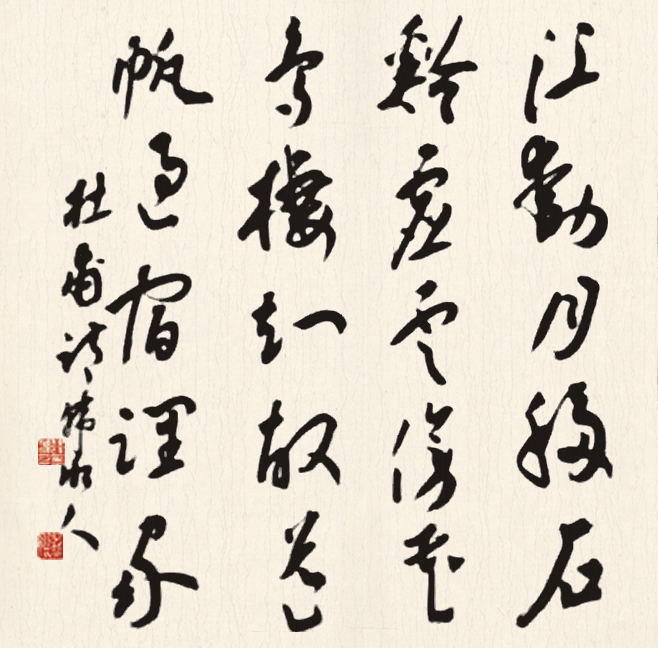 江動月移石
谿虛雲傍花
鳥棲知故道
帆過宿誰家
杜甫詩